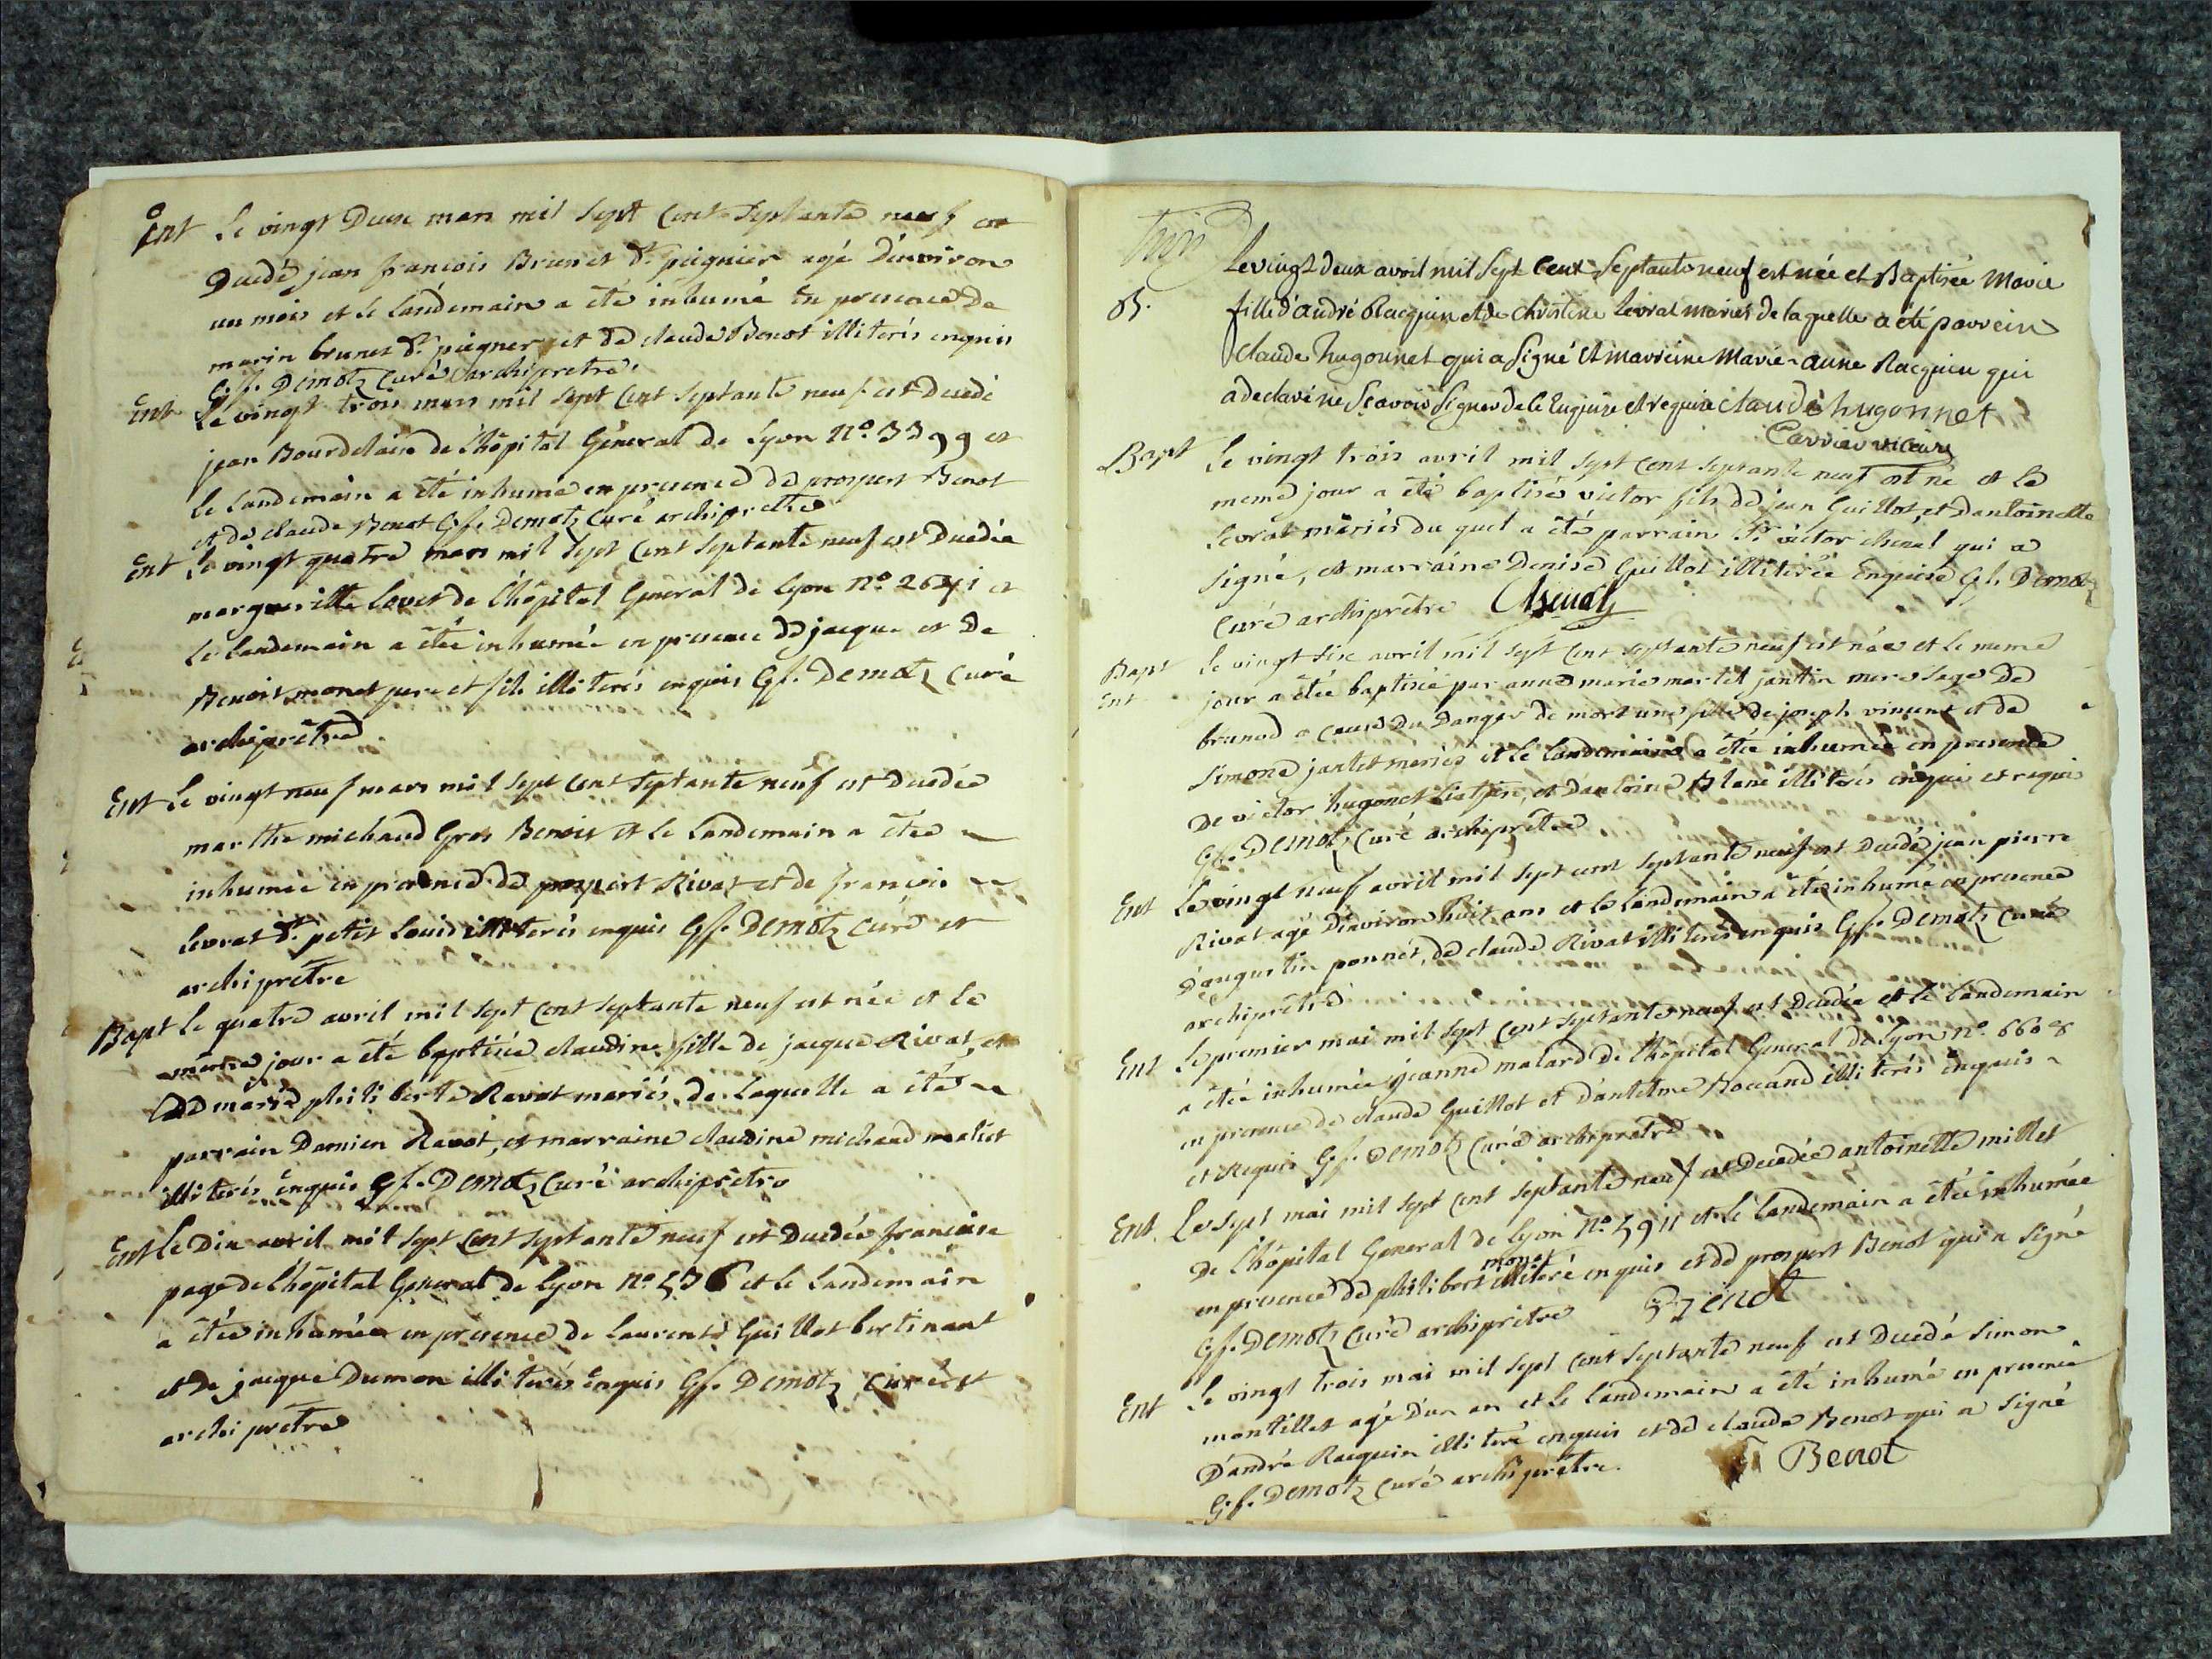 Ent Le vingt Deux mars mil sept cent septante neuf est
Decedé jean francois Brunet dt. peignier agé d'environ
un mois et le landemain a été inhumé en presence de
marin brunet dt. piegner et de claude Benot illiterés enquis
G.f. Demotz curé archipretre.
Ent Le vingt trois mars mil sept cent septante neuf est decedé
jean Bourdelain de l'hôpital Géneral de Lyon n.o 3399 et
le landemain a été inhumé en presence de prospert Benot
et de claude Benot G.f. Demotz curé archiprêtre
Ent Le vingt quatre mars mil sept cent septante neuf est decedée
margueritte lovet de l'hôpital General de lyon n.o 2641 et
le landemain a étée inhumée en presence de jacque et de
Benoit monet pere et fils illiterés enquis Gf. Demotz curé
archiprêtre
Ent Le vingt neuf mars mil sept cent septante neuf est decedée
marthe michaud Gros Benoit et le landemain a étée
inhumée en presence de prospert Rivat et de francois
levrat dt. petit Louis illiterés enquis Gf. Demotz curé et
archiprêtre
Bapt le quatre avril mil sept cent septante neuf est née et le
même jour a été baptisée claudine fille de jacque Rivat, et
de marie philiberte Ravat mariés, de laquelle a été
parrain Damien Ravat, et marraine claudine michaud
illiterés enquis Gf. Demotz curé archiprêtre
Ent le Dix avril mil sept cent septante neuf est decedée francoise
page de l'hôpital General de lyon n.o 536 et le landemain
a étée inhumée en presence de Laurent Guillot bertinant
et de jacque Dumon illiterés enquis Gf. Demotz curé et
archiprêtre
B. Le vingt deux avril mil sept cent septante neuf est née et Baptisée Marie
fille d'andré Racquin et de christine Levrat mariés de laquelle a été parrein
claude hugonnet qui a signé et marreine Marie-anne Racquin qui
a declaré ne scavoir signer de le Enquise et requise claude hugonnet
Carrier vicaire
Bapt le vingt trois avril mil sept cent septante neuf est né et le
meme jour a été baptisé victor fils de jean Guillot, et d'antoinette
Levrat mariés du quel a été parrain Sr. victor chenal qui a
signé, et marraine Denise Guillot illiterée enquise Gf. Demotz
curé archiprêtre Chenal
Bapt le vingt six avril mil sept cent septante neuf est née et le meme
Ent jour a étée baptisée par anne marie martel jantin mere sage de
brenod a cause du Danger de mort une fille de joseph vincent et de
simone jantet mariés et le landemain a étée inhumée en presence
de victor hugonet et d'antoine Blanc illiterés enquis et requis
Gf. Demotz curé archiprêtre
Ent Le vingt neuf avril mil sept cent septante neuf est decedé jean pierre
Rivat agé d'environ huit ans et le landemain a été inhumé en presence
d'augustin ponnet, de claude Rivat illiterés enquis Gf. Demotz curé
archiprêtre
Ent Le premier mai mil sept cent septante neuf est decedée et le landemain
a étée inhumée jeanne malard de l'hôpital General de lyon n.o 6608
en presence de claude Guillot et d'antelme Boccand illiterés enquis
et Requis Gf. Demotz curé archiprêtre
Ent. Le sept mai mil sept cent septante neuf est decedée antoinette millet
de l'hôpital General de lyon n.o 5911 et le landemain a étée inhumée
en presence de philibert monet illiteré enquis et de prospert Benot qui a signé
Gf. Demotz curé archiprêtre P Benot
Ent Le vingt trois mai mil sept cent septante neuf est decedé simon
montillet agé d'un an et le landemain a été inhumé en presence
d'andré Racquin illiteré enquis et de claude Benot qui a signé
G.f. Demotz curé archiprêtre. Benot